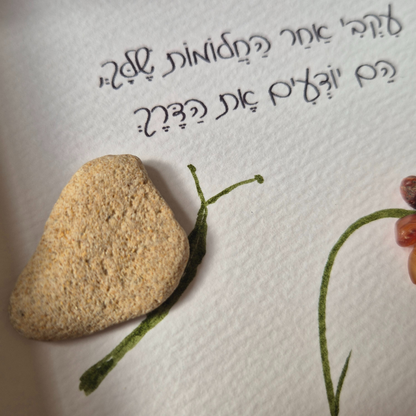 עִקְבִי אַחַר הַחֲלוֹמוֹת שֶׁלָּךְ,
הֵם יוֹדְעִים אֶת הַדֶּרֶךְ